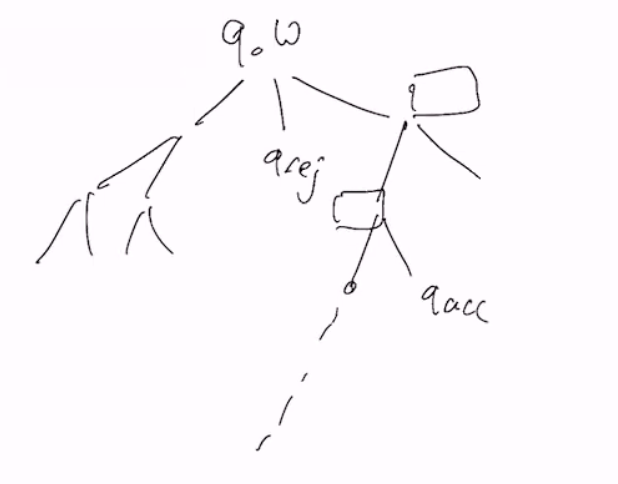 q₀w
q
qrej
qacc